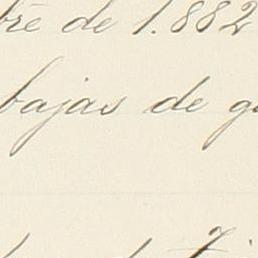 bre de 1.882
bajas de g